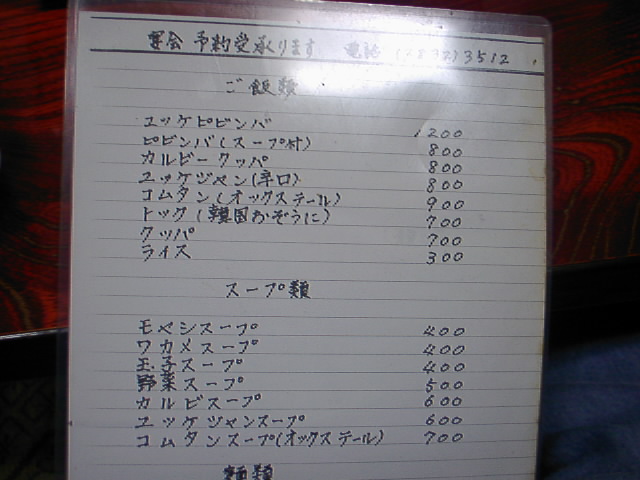 宴会 予約受承ります 電話 3512
ご飯類
ユッケピビンバ 1200
ピビンバ(スープ付) 800
カルビークッパ 800
ユッケヅャン(辛口) 800
コムタン(オックステール) 900
トック(韓国おぞうに) 700
クッパ 700
ライス 300
スープ類
モヤシスープ 400
ワカメスープ 400
玉子スープ 400
野菜スープ 500
カルビスープ 600
ユッケヅャンスープ 600
コムタンスープ(オックステール) 700
麺類